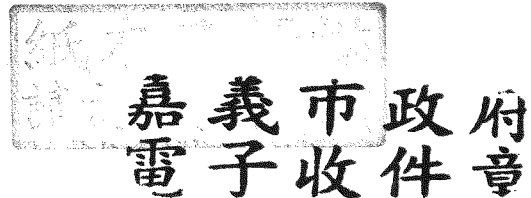 嘉義市政府
電子收件章